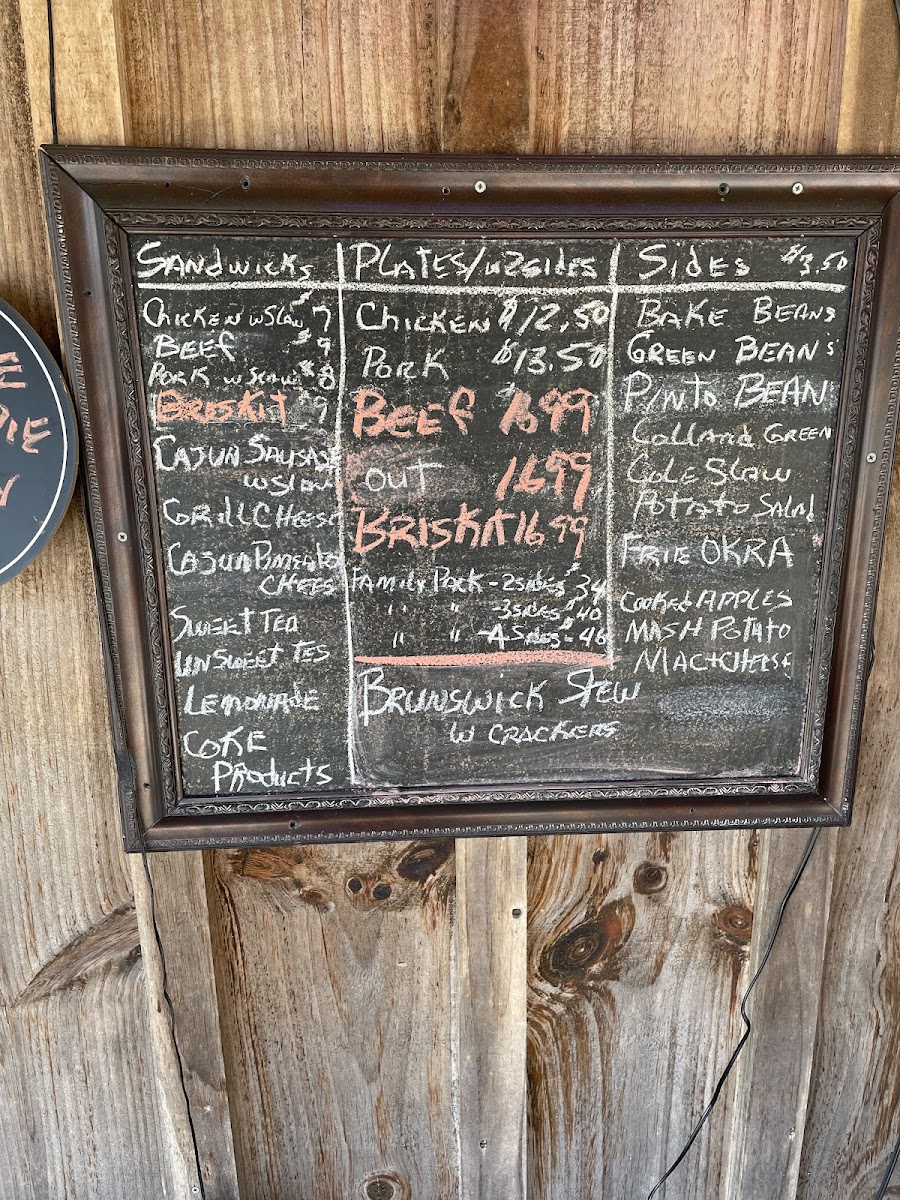 SANDWICKS
CHICKEN W SLAW $7
BEEF $9
PORK W SLAW $8
BRISKIT 9
CAJUN SAUSAGE
W SLAW
GRILL CHEESE
CAJUN PIMENTO
CHEES
SWEET TEA
UNSWEET TES
LEMONADE
COKE
PRODUCTS
PLATES/W 2 SIDES
CHICKEN $12.50
PORK $13.50
BEEF 1699
OUT 1699
BRISKIT 1699
FAMILY PACK - 2 SIDES $34
" " -3 SIDES $40
" " -4 SIDES - $46
BRUNSWICK STEW
W CRACKERS
SIDES $3.50
BAKE BEANS
GREEN BEANS
PINTO BEAN
COLLARD GREEN
COLE SLAW
POTATO SALAD
FRIE OKRA
COOKED APPLES
MASH POTATO
MAC+CHEESE
E
PIE